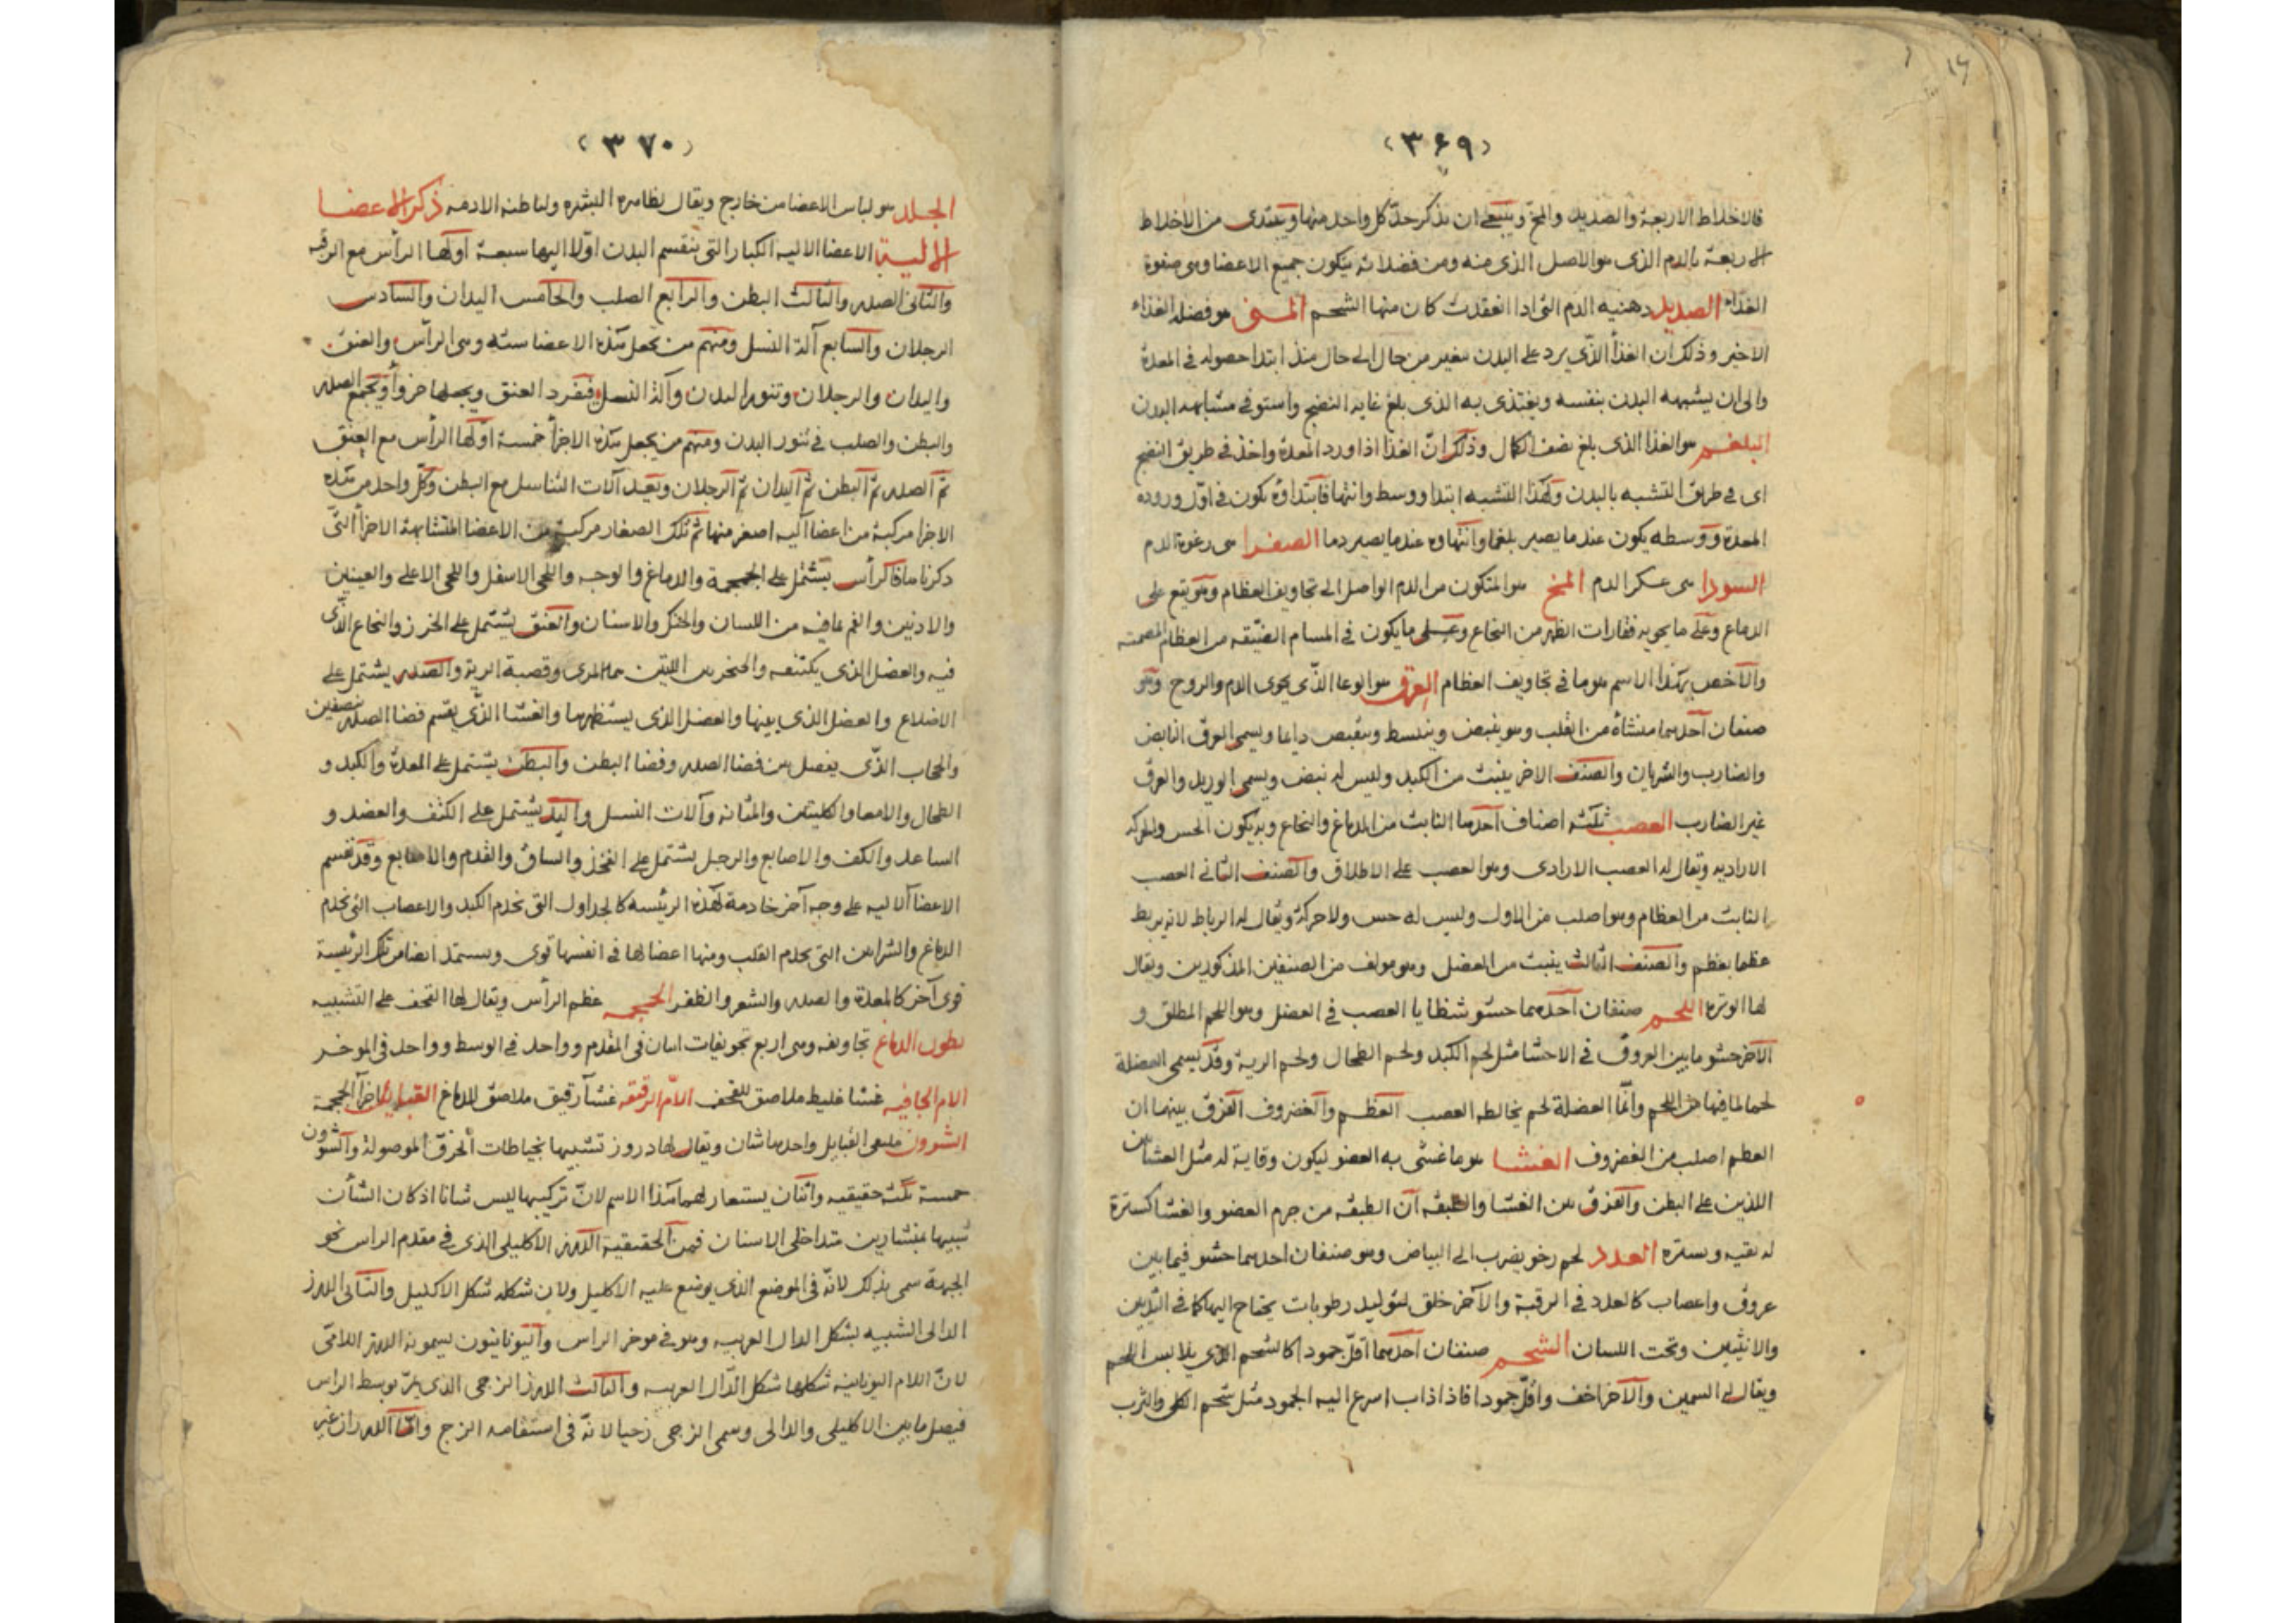 ﴿٣۶٩﴾
فالاخلاط الاربعة والصديد والمخ وينبغى ان يذكر حدّ كل واحد منها ويبتدى من الاخلاط
الاربعة بالدم الذى هو الاصل الذى منه ومن فضلاته يتكون جميع الاعضا وهى صفوة
الغذاء الصديد دهنيه الدم التى اذا انعقدت كان منها الشحم المنى هو فضلة الغذاء
الاخير وذلك ان الغذا الذّى يرد على البدن متغير من حال الى حال منذ ابتدا حصوله فى المعدة
والى ان يشبهه البدن بنفسه ويغتذى به الذى بلغ غاية النضج واستوفى مشابهة البدن
البلغم هو الغذا الذى بلغ نصف الكمال وذلك انّ الغذا اذا ورد المعدة واخذ فى طريق النضج
اى فى طريق التشبه بالبدن ولهذا التشبه ابتدا ووسط وانتها فابتداؤه يكون فى اوّل وروده
المعدة ووسطه يكون عندما يصير بلغما وانتهاوه عندما يصير دما الصفرا هى رغوة الدم
السودا هى عكر الدم المخ هو المتكون من الدم الواصل الى تجاويف العظام وهو يقع على
الدماغ وعلى ما يحويه فقارات الظهر من النخاع وعلى ما يكون فى المسام الضيقه من العظام المصمته
والاخص بهذا الاسم هو ما فى تجاويف العظام العرق هو الوعا الذّى يحوى الدم والروح وهو
صنفان احدهما منشاه من القلب وهو ينبض وينبسط وينقبض دايما ويسمى العرق النابض
والضارب والشريان والصنف الاخر ينبث من الكبد وليس له نبض ويسمى الوريد والعرق
غير الضارب العصب ثلثه اصناف احدها النابث من الدماغ والنخاع وبه يكون الحس والحركه
الاراديه ويقال له العصب الارادى وهو العصب على الاطلاق والصنف الثانى العصب
النابث من العظام وهو اصلب من الاول وليس له حس ولا حركة ويقال له الرباط لانه يربط
عظما بعظم والصنف الثالث ينبث من العضل وهو مولف من الصنفين المذكورين ويقال
لها الوتره اللحم صنفان احدهما حشو شظايا العصب فى العضل وهو اللحم المطلق و
الآخر حشو ما بين العروق فى الاحشا مثل لحم الكبد ولحم الطحال ولحم الرية وقد يسمى العضلة
لحما لما فيها من اللحم وانّما العضلة لحم يخالطه العصب العظم والغضروف الفرق بينهما ان
العظم اصلب من الغضروف الغشا هو ما غشّى به العضو ليكون وقاية له مثل الغشاين
اللذين على البطن والفرق بين الغشا والطبقه ان الطبقه من جرم العضو والغشا كسترة
له تقيه وبستره الغدد لحم رخو يضرب الى البياض وهو صنفان احدهما حشو فيما بين
عروق واعصاب كالغدد فى الرقبة والآخر خلق لتوليد رطوبات يحتاج اليها كما فى الثديين
والانثيين وتحت اللسان الشحم صنفان احدهما اقلّ جمودا كالشحم الذى يلابس اللحم
ويقال له السمين والآخر اخف واقلّ جمودا فاذا ذاب اسرع اليه الجمود مثل شحم الكلى والثرب
﴿٣٧٠﴾
الجلد هو لباس الاعضا من خارج ويقال لظاهره البشره ولباطنه الادمه ذكر الاعضا
الآلية الاعضا الاليه الكبار التى ينقسم البدن اوّلا اليها سبعة اولها الرأس مع الرقبه
والثانى الصدر والثالث البطن والرابع الصلب والخامس اليدان والسادس
الرجلان والسابع آلة النسل ومنهم من يجعل هذه الاعضا ستة وهى الرأس والعنق
واليدان والرجلان وتنور البدن وآلة النسل فيفرد العنق ويجعلها جزوأ ويجمع الصدر
والبطن والصلب فى تنور البدن ومنهم من يجعل هذه الاجزأ خمسة اوّلها الرأس مع العنق
ثمّ الصدر ثمّ البطن ثمّ اليدان ثمّ الرجلان ويعيد آلات التناسل مع البطن وكلّ واحد من هذه
الاجزا مركبة من اعضا آليه اصغر منها ثم تلك الصغار مركبة من الاعضا المتشابهة الاجزأ التّى
ذكرناها فالرأس يشتمل على الجمجمة والدماغ والوجه واللحى الاسفل واللحى الاعلى والعينين
والاذنين والفم بما فيه من اللسان والحنك والاسنان والعنق يشتمل على الخرز والنخاع الذّى
فيه والعضل الذى يكتنفه والحنجرتين اللتين هما المرى وقصبة الرية والصدر يشتمل على
الاضلاع والعضل الذى بينها والعضل الذى يستظهرها والغشا الذّى يقسم فضا الصدر نصفين
والحجاب الذّى يفصل بين فضا الصدر وفضا البطن والبطن يشتمل على المعدة والكبد و
الطحال والامعا والكليتين والمثانه وآلات النسل واليد يشتمل على الكتف والعضد و
الساعد والكف والاصابع والرجل يشتمل على الفخذ والساق والقدم والاصابع وقد تقسم
الاعضا الاليه على وجه آخر خادمة لهذه الرئيسه كالجداول التى تخدم الكبد والاعصاب التى تخدم
الدماغ والشرايين التى تخدم القلب ومنها اعضا لها فى انفسها قوى ويستمد ايضا من تلك الرئيسة
قوى آخر كالمعدة والصدر والشعر والظفر الجمجمه عظم الرأس ويقال لها القحف على التشبيه
بطون الدماغ تجاويفه وهى اربع تجويفات اثنان فى المقدم وواحد فى الوسط وواحد فى الموخر
الام الجافيه غشا غليظ ملاصق للقحف الامّ الرقيقه غشآ رقيق ملاصق للدماغ القبايل اجزآ الجمجمة
الشوون ملتقى القبايل واحدها شان ويقال لها دروز تشبيها بخياطات الخرق الموصولة والشوون
خمسة ثلثه حقيقيه واثنان يستعار لهما هذا الاسم لانّ تركيبها ليس شانا اذ كان الشأن
شبيها بمنشارين متداخلى الاسنان فمن الحقيقية الدرز الاكليلى الذى فى مقدم الراس نحو
الجبهة سمى بذلك لانّه فى الموضع الذى يوضع عليه الاكليل ولان شكله شكل الاكليل والثانى الدرز
الدالى الشبيه بشكل الدال العربيه وهو فى موخر الراس واليونانيون يسمونه الدرز اللامّى
لانّ اللام اليونانيه شكلها شكل الدّال العربيه والثالث الدرز الزجى الذى يمرّ بوسط الراس
فيصل ما بين الاكليلى والدالى وسمى الزجى زجيا لانّه فى استقامه الزج وامّا الدرزان غير